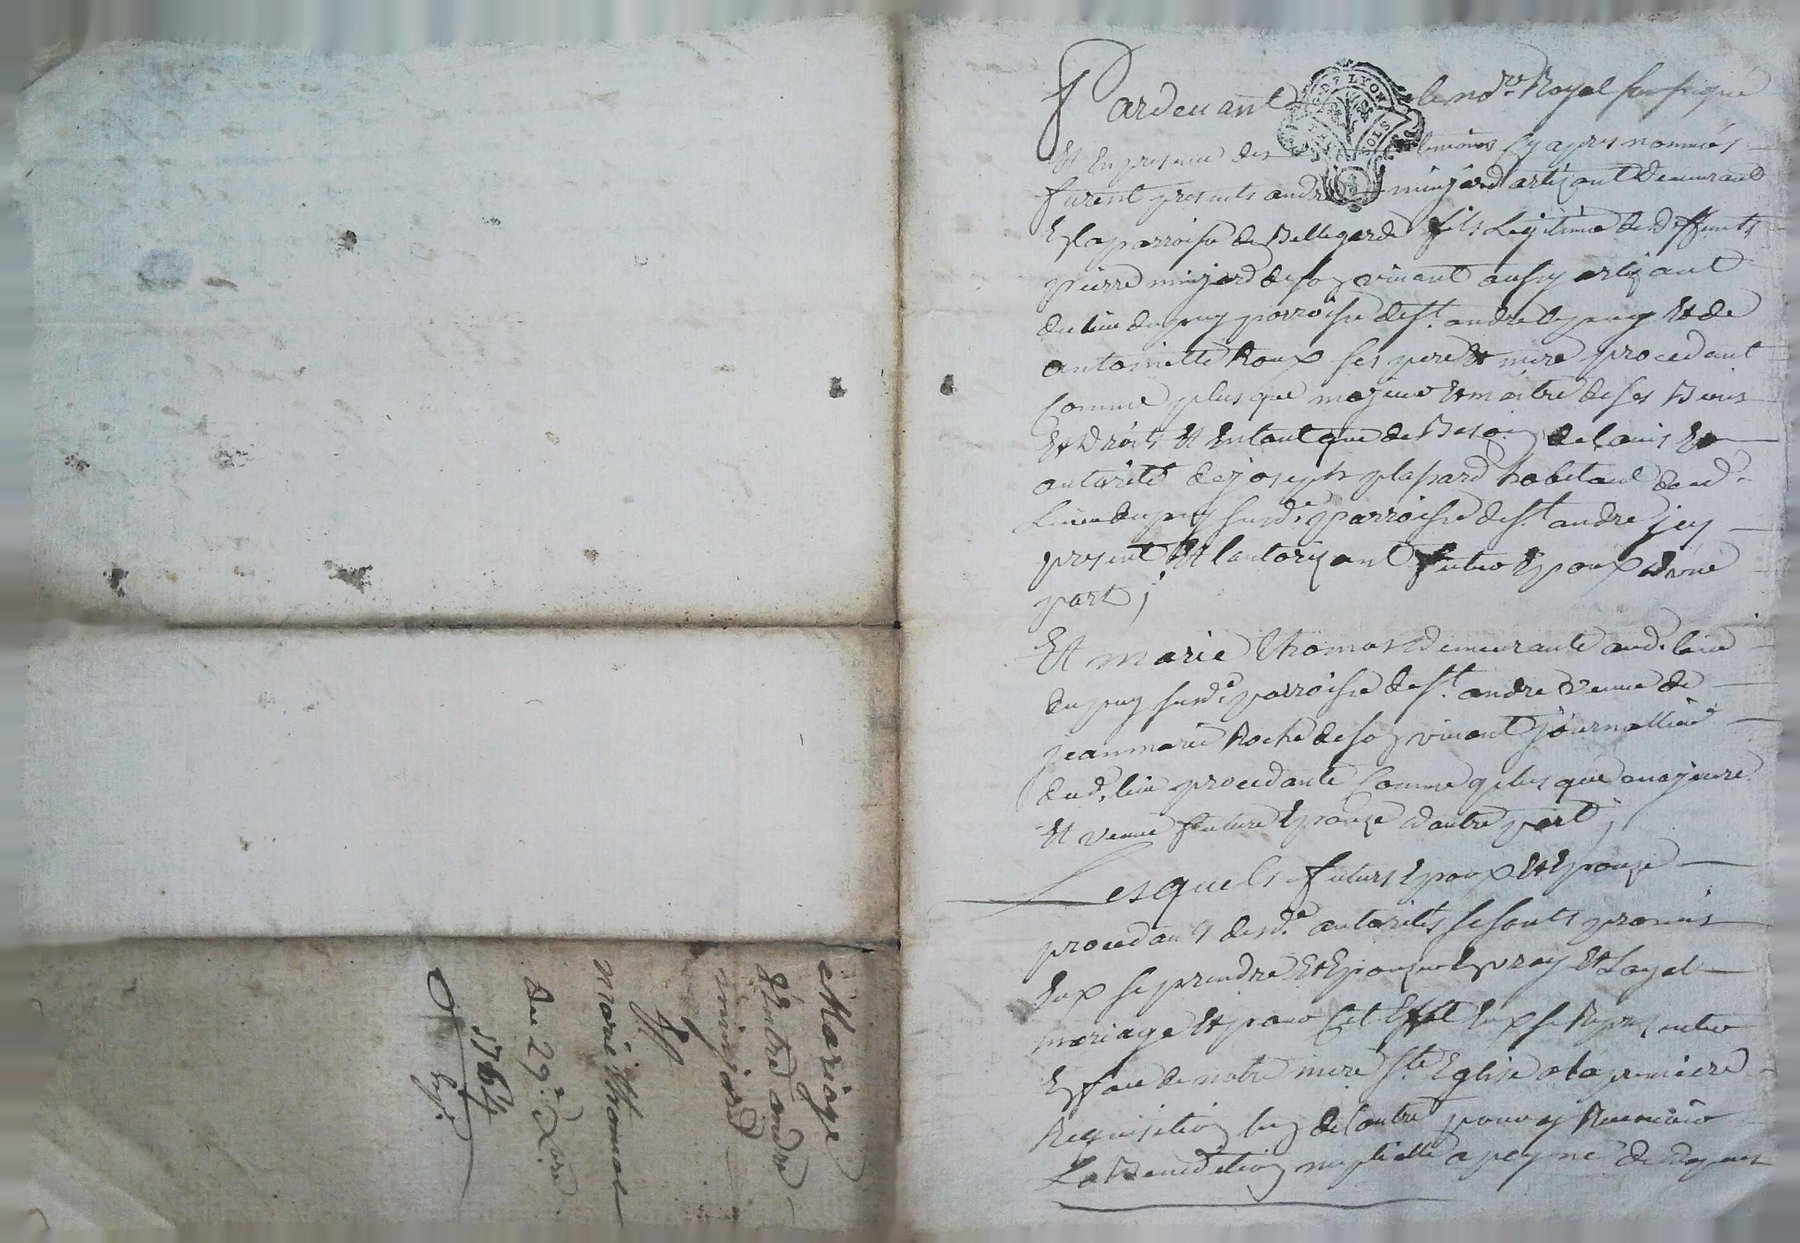 Pardevant le no.re Royal soussigné
Et En presence des temoins Cy apres nommés
furent presents andré minjard artizant Demeurant
En la parroisse de Bellegarde fils Legitime de Deffunts
pierre minjard de son vivant aussy artizant
du lieu du puy parroisse de St. andré le puy Et de
antoinette Roux ses pere Et mere procedant
Comme plus que majeur Et maitre de ses Biens
Et Droits Et Entant que de Besoin de lavis Et
autorité de joseph plassard habitant dud.
Lieu du puy susd.e parroisse de St andré jcy
present Et lautorizant futur Epoux Dune
part ;
Et marie thomas Demeurante aud. lieu
du puy susd.e parroisse de St. andré veuve de
jean marie Roche de son vivant journallier
dud. lieu procedante Comme plus que majeure
Et veuve future Epouze Dautre part ;
Lesquels futurs Epoux Et Epouze
procedants desd.e autorités se sont promis
Eux se prendre Et Epouzer En vray Et Loyal
mariage Et pour Cet Effet Eux se Reprezenter
En face de notre mere Ste Eglise a la premiere
Requisition lun de lautre pour y Recevoir
La Benediction nuptialle a peyne de Depens
Mariage
d'Entre andré
minjard
Et
marie thomas
du 29.e X.bre
1764